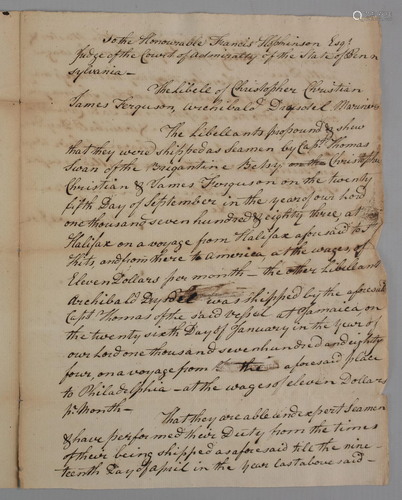 To the Honourable Francis Hopkinson Esqr
Judge of the Court of Admiralty of the State of Penn
sylvania —
The Libell of Christopher Christian
James Ferguson, Archibald Drysdel Mariners
The Libellants propound & shew
that they were shipped as Seamen by Capt. Thomas
Swan of the Brigantine Betsy Christopher
Christian & James Ferguson on the twenty
fifth Day of September in the year of our Lord
one thousand seven hundred & eighty three, at
Halifax on a voyage from Halifax aforesaid to St
Kits, and from there to America at the wages of
Eleven Dollars per month — the other libellant
Archibald Drysdel was shipped by the aforesaid
Capt. Thomas of the said vessel at Jamaica, on
the twenty sixth Day of January in the year of
our Lord one thousand seven hundred and eighty
four, on a voyage from the aforesaid place
to Philadelphia — at the wages of eleven Dollars
pr Month —
That they are able and expert Seamen
& have performed their Duty from the times
of their being shipped as aforesaid till the nine-
teenth Day of April in the year last above said —